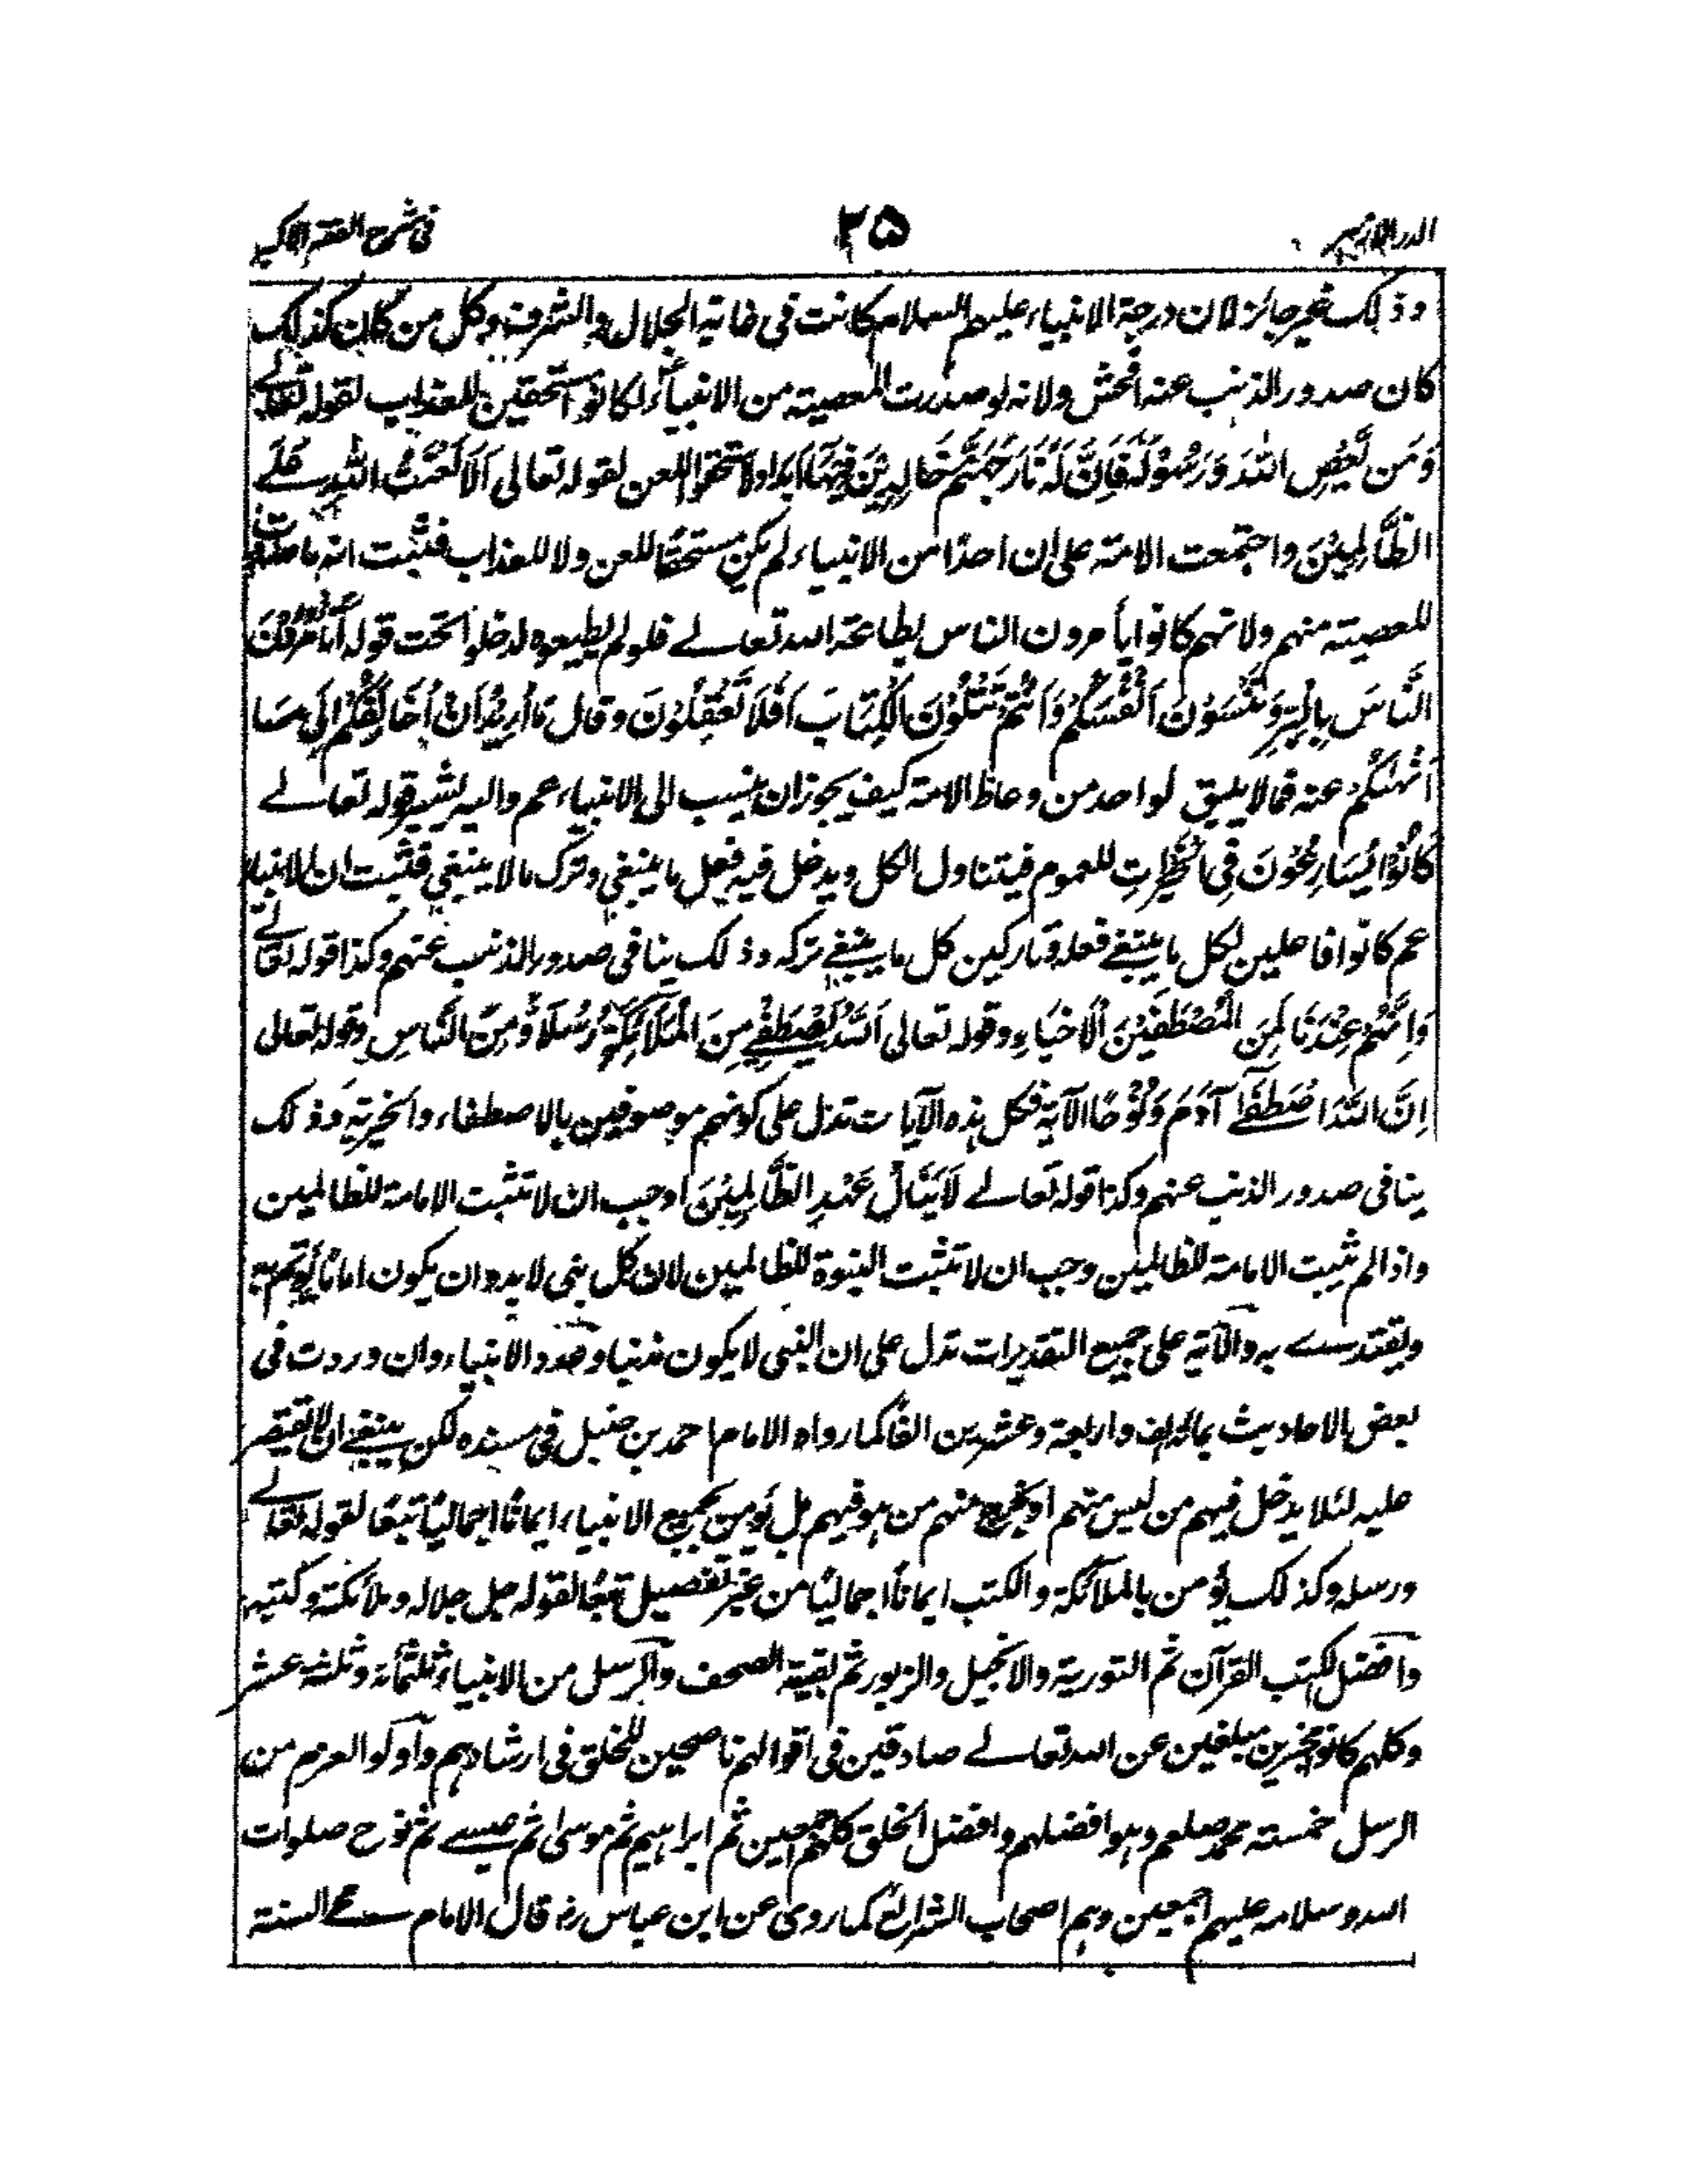 الدر الازهر ٢٥ فى شرح الفقه الاكبر
وذلك غير جائز لان درجة الانبياء عليهم السلام كانت فى غاية الجلال والشرف وكل من كان كذلك
كان صدور الذنب عنه افحش ولانه لو صدرت المعصية من الانبياء لكانوا مستحقين للعذاب لقوله تعالے
وَمَن يَّعْصِ اللّٰهَ وَرَسُوْلَهٗ فَاِنَّ لَهٗ نَارَ جَهَنَّمَ خَالِدِيْنَ فِيْهَا اَبَدًا ولاستحقوا اللعن لقوله تعالى اَلَا لَعْنَتُ اللّٰهِ عَلَے
الظّٰلِمِيْنَ واجتمعت الامة على ان احدًا من الانبياء لم يكن مستحقًا للعن ولا للعذاب فثبت انه ما صدرت
المعصية منهم ولانهم كانوا يأمرون الناس بطاعة الله تعالے فلو لم يطيعوه لدخلوا تحت قوله أَتَأْمُرُوْنَ
النَّاسَ بِالْبِرِّ وَتَنْسَوْنَ اَنْفُسَكُمْ وَاَنْتُمْ تَتْلُوْنَ الْكِتَابَ اَفَلَا تَعْقِلُوْنَ وقال مَا اُرِيْدُ اَنْ اُخَالِفَكُمْ اِلٰى مَا
اَنْهٰىكُمْ عنه فمالا يليق لواحد من وعاظ الامة كيف يجوز ان ينسب الى الانبياء عم واليه يشير قوله تعالے
كَانُوْا يُسَارِعُوْنَ فِى الْخَيْرٰتِ للعموم فيتناول الكل ويدخل فيه فعل ما ينبغى وترك ما لا ينبغى فثبت ان الانبياء
عم كانوا فاعلين لكل ما ينبغے فعله وتاركين كل ما ينبغے تركه وذلك ينافى صدور الذنب عنهم وكذا قوله تعالے
وَاِنَّهُمْ عِنْدَنَا لَمِنَ الْمُصْطَفَيْنَ الْاَخْيَارِ وقوله تعالى اَللّٰهُ يَصْطَفِے مِنَ الْمَلَآئِكَةِ رُسُلًا وَّمِنَ النَّاسِ وقوله تعالى
اِنَّ اللّٰهَ اصْطَفٰے آدَمَ وَنُوْحًا الآية فكل هذه الآيات تدل على كونهم موصوفين بالاصطفاء والخيرية وذلك
ينافى صدور الذنب عنهم وكذا قوله تعالے لَايَنَالُ عَهْدِى الظَّالِمِيْنَ اوجب ان لا تثبت الامامة للظالمين
واذا لم تثبت الامامة للظالمين وجب ان لا تثبت النبوة للظالمين لان كل نبى لا بد وان يكون امامًا يؤتم به
ويقتدے به والآية على جميع التقديرات تدل على ان النبى لا يكون مذنبا وعدد الانبياء وان وردت فى
بعض الاحاديث بمائة الف واربعة وعشرين الفًا كما رواه الامام احمد بن حنبل فى مسنده لكن ينبغے ان لا تقتصر
عليه لئلا يدخل فيهم من ليس منهم او يخرج منهم من هو فيهم بل نؤمن بجميع الانبياء ايمانًا اجماليًا تبعًا لقوله تعالے
ورسله وكذلك نؤمن بالملآئكة والكتب ايمانًا اجماليًا من غير تفصيل تبعًا لقوله جل جلاله وملآئكته وكتبه
وافضل الكتب القرآن ثم التورية والانجيل والزبور ثم بقية الصحف والرسل من الانبياء ثلثمأة وثلثة عشر
وكلهم كانوا مخبرين مبلغين عن الله تعالے صادقين فى اقوالهم ناصحين للخلق فى ارشادهم واولوا العزم من
الرسل خمسة محمد صلعم وهو افضلهم وافضل الخلق كلهم اجمعين ثم ابراهيم ثم موسىٰ ثم عيسے ثم نوح صلوات
الله وسلامه عليهم اجمعين وهم اصحاب الشرائع كما روى عن ابن عباس رض قال الامام محے السنة